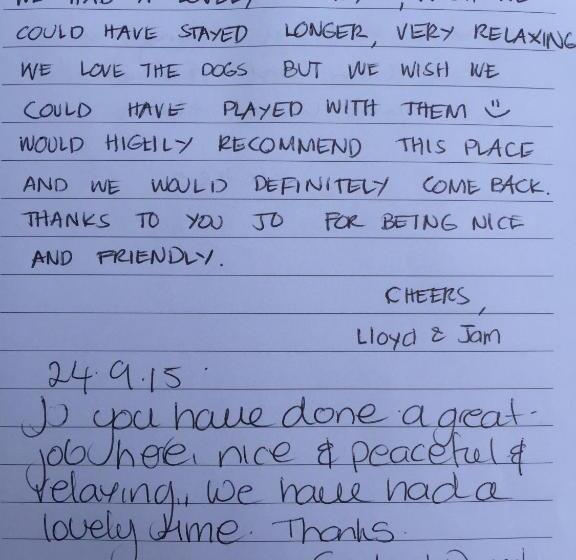 WE HAD A LOVELY
COULD HAVE STAYED LONGER, VERY RELAXING
WE LOVE THE DOGS BUT WE WISH WE
COULD HAVE PLAYED WITH THEM
WOULD HIGHLY RECOMMEND THIS PLACE
AND WE WOULD DEFINITELY COME BACK.
THANKS TO YOU JO FOR BEING NICE
AND FRIENDLY.
CHEERS,
Lloyd & Jam
24.9.15
Jo you have done a great
job here, nice & peaceful &
relaxing, We have had a
lovely time. Thanks.